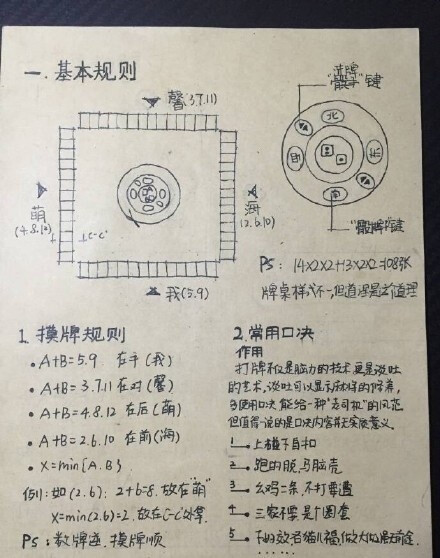 一.基本规则
馨(3.7.11)
萌
(4.8.12)
海
(2.6.10)
我(5.9)
⊥C-C'
"洗牌
骰子"键
北
西
东
南
PS: 14×2×2+13×2×2=108张
牌桌样式不一,但道理是这个道理
1.摸牌规则
·A+B=5.9 在手(我)
·A+B=3.7.11在对(馨)
·A+B=4.8.12 在后(萌)
·A+B=2.6.10 在前(海)
·X=min{A.B}
例:如(2.6): 2+6=8.放在"萌"
X=min(2.6)=2.放在C-C'处拿.
PS: 数牌逆.摸牌顺
2.常用口决
作用
打牌不仅是脑力的技术更是谈吐
的艺术,谈吐可以显示你的
多使用口决能给一种"老司机"的风范
但值得一说的是口决内容并无实质意义.
1 上碰下自和
2 跑的脱,马脑壳
3 幺鸡二条,不打要遭
4 三家不要是个圆套
5
......